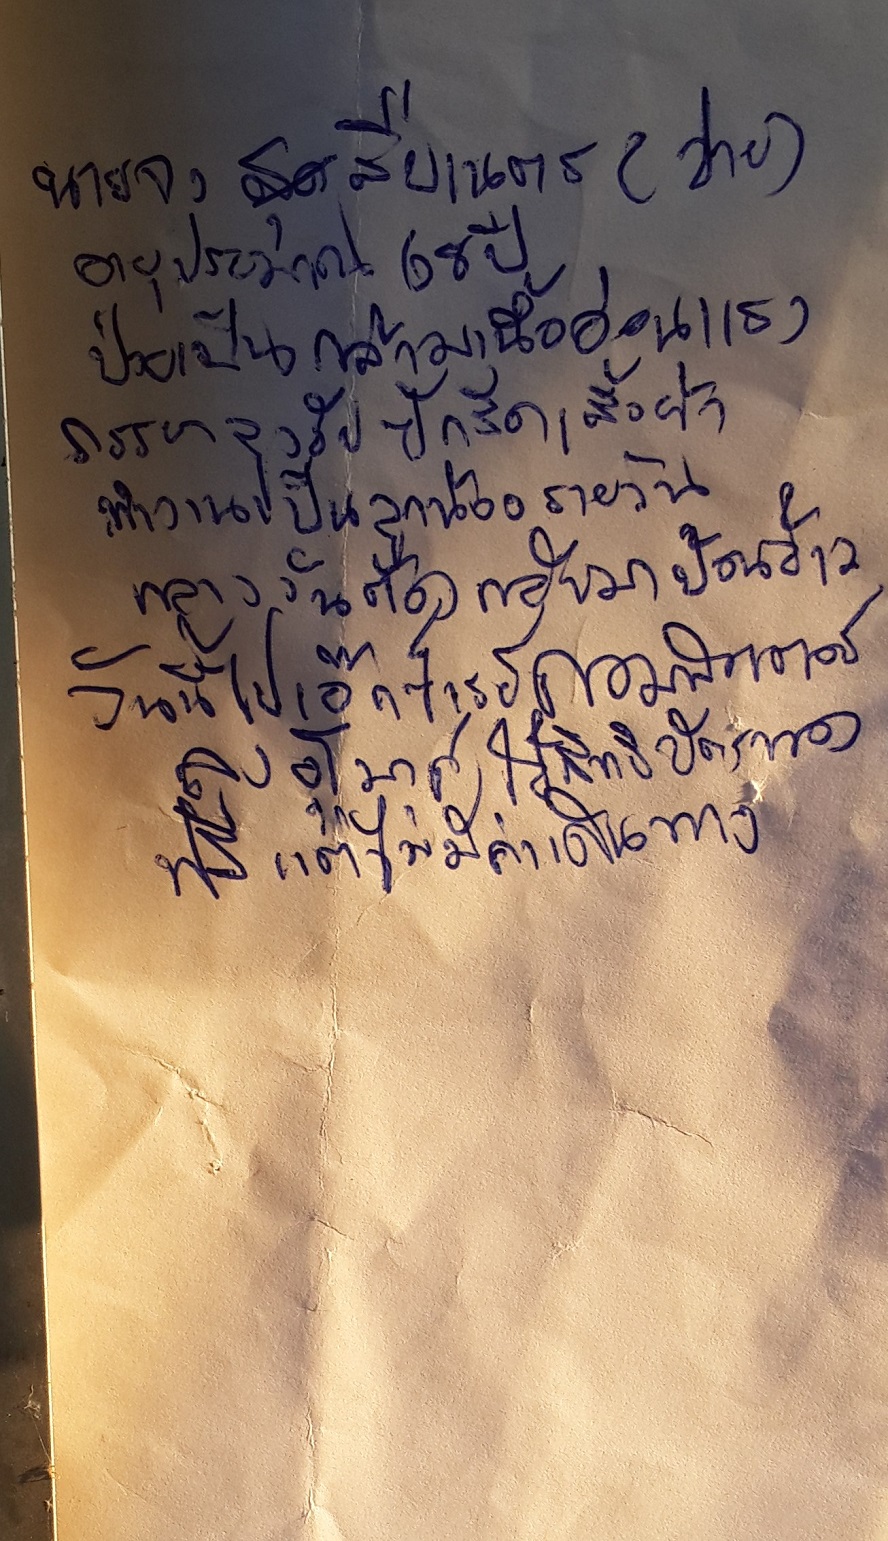 นายจง สุดสี่ยเนตร (ชาย)
อายุประมาณ 68 ปี
ป่วยเป็น กล้ามเนื้ออ่อนแรง
ภรรยา รับ ปักเสื้อผ้า
ทำงานเป็นลูกน้อง รายวัน
กลางวันต้องกลับมาป้อนข้าว
วันนี้ไปเอ็กซ์เรย์คอมพิวเตอร์
ใช้สิทธิบัตรทอง
ฟรี แต่ไม่มีค่าเดินทาง